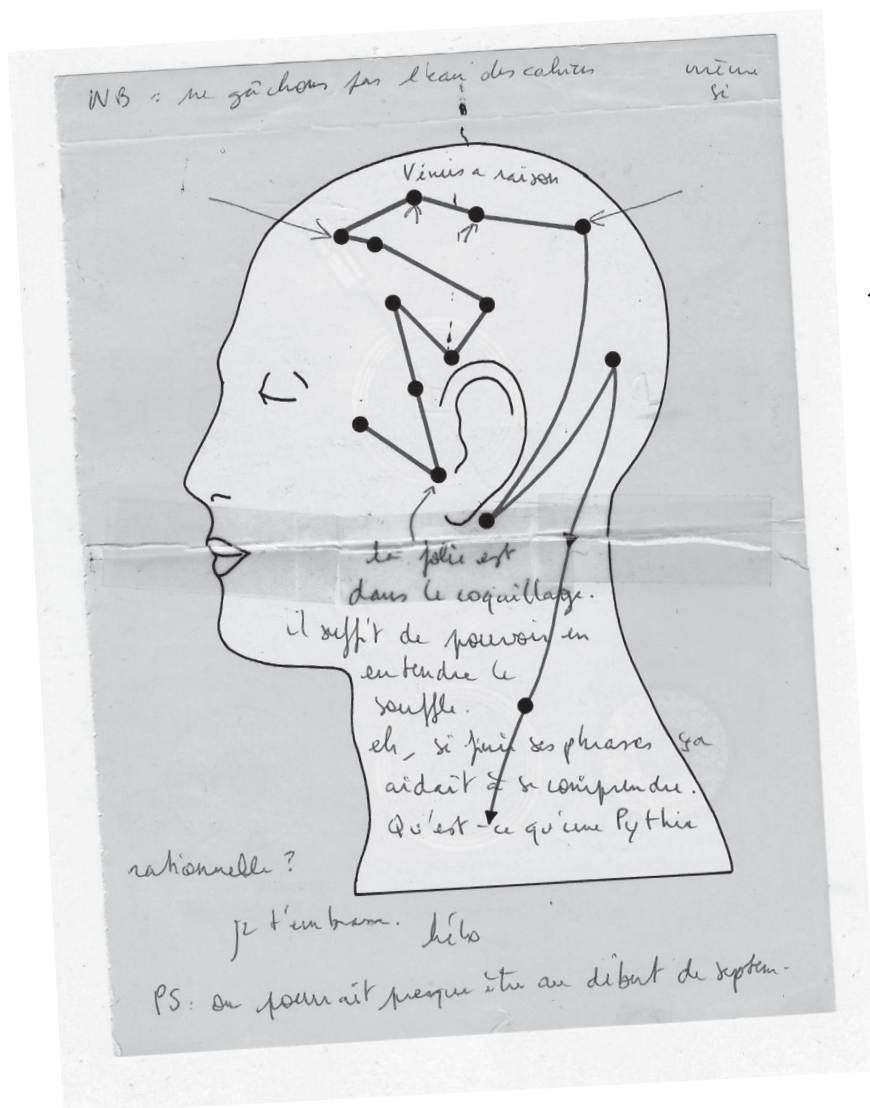 NB : ne gâchons pas l'eau des cahiers même
si
Vénus a raison
la folie est
dans le coquillage.
il suffit de pouvoir en
entendre le
souffle.
eh, si finir ses phrases ça
aidait à se comprendre.
Qu'est-ce qu'une Pythie
rationnelle ?
je t'embrasse.
PS : on pourrait presque être au début de septem-